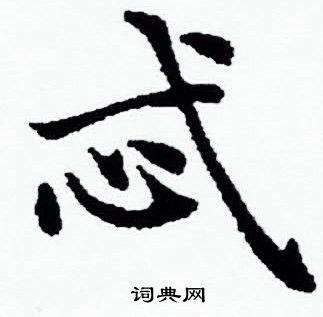 忒
词典网